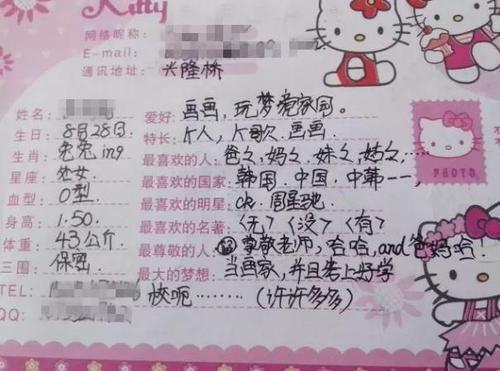 Kitty
网络昵称:
E-mail:
通讯地址: 兴隆桥
姓名: 爱好: 画画,玩梦 家园。
生日: 8月28日. 特长: K人,K歌.画画
生肖: 兔兔ing 最喜欢的人: 爸々,妈々,妹々,姑々……
星座: 处女 最喜欢的国家: 韩国.中国.中韩一一,
血型: O型 最喜欢的明星: ck.周星驰
身高: 1.50 最喜欢的名著: 〈无〉〈没〉〈有〉
体重: 43公斤 最尊敬的人: 尊敬老师,哈哈,and爸妈哈!
三围: 保密 最大的梦想: 当画家,并且考上好学
TEL: 校呃………(许许多多)
QQ:
PHOTO